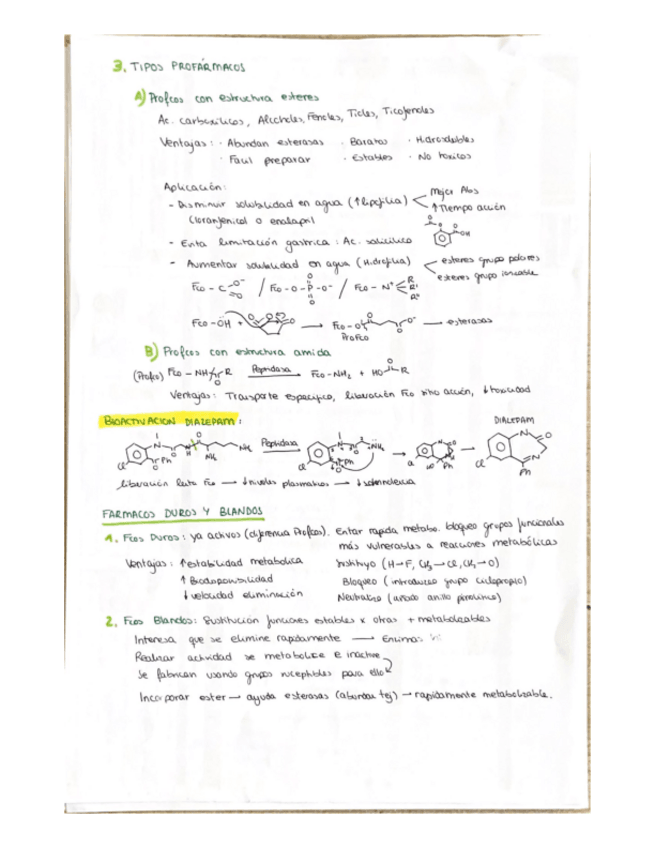 3. TIPOS PROFÁRMACOS
A) Profcos con estructura esteres
Ac. carboxílicos, Alcoholes, Fenoles, Tioles, Tiofenoles
Ventajas: · Abundan esterasas · Baratos · Hidrosolubles
· Fácil preparar · Estables · No tóxicos
Aplicación:
- Disminuir solubilidad en agua (↑lipofilia) Mejor Abs
↑Tiempo acción
Cloranfenicol o enalapril
- Evita limitación gástrica: Ac. salicílico
- Aumentar solubilidad en agua (Hidrofilia) esteres grupo polares
esteres grupo ionizable
Fco - C / Fco - O - P - O⁻ / Fco - N⁺
Fco - OH + → Fco - O → esterasas
Profco
B) Profcos con estructura amida
(Profco) Fco - NH R Peptidasa Fco - NH₂ + HO R
Ventajas: Transporte específico, liberación Fco sitio acción, ↓toxicidad
BIOACTIVACION DIALEPAM:
DIALEPAM
Cl Ph NH₂ NH₂ Peptidasa Cl Ph NH₂ → Cl HO Ph → Cl Ph
liberación lenta Fco → ↓niveles plasmáticos → ↓somnolencia
FARMACOS DUROS Y BLANDOS
1. Fcos Duros: ya activos (diferencia Profcos). Evitar rapida metabo. bloqueo grupos funcionales
más vulnerables a reacciones metabólicas
Ventajas: ↑estabilidad metabolica Sustituyo (H→F, CH₃→Cl, CH₂→O)
↑ Biodisponibilidad Bloqueo (introduce grupo ciclopropio)
↓velocidad eliminación
2. Fcos Blandos: Sustitución funciones estables x otras + metabolizables
Interesa que se elimine rapidamente → Enzimas
Realizar actividad se metabolice e inactive
Se fabrican usando grupos suceptibles para ello
Incorporar ester → ayuda esterasas (abundan tej) → rapidamente metabolizable.